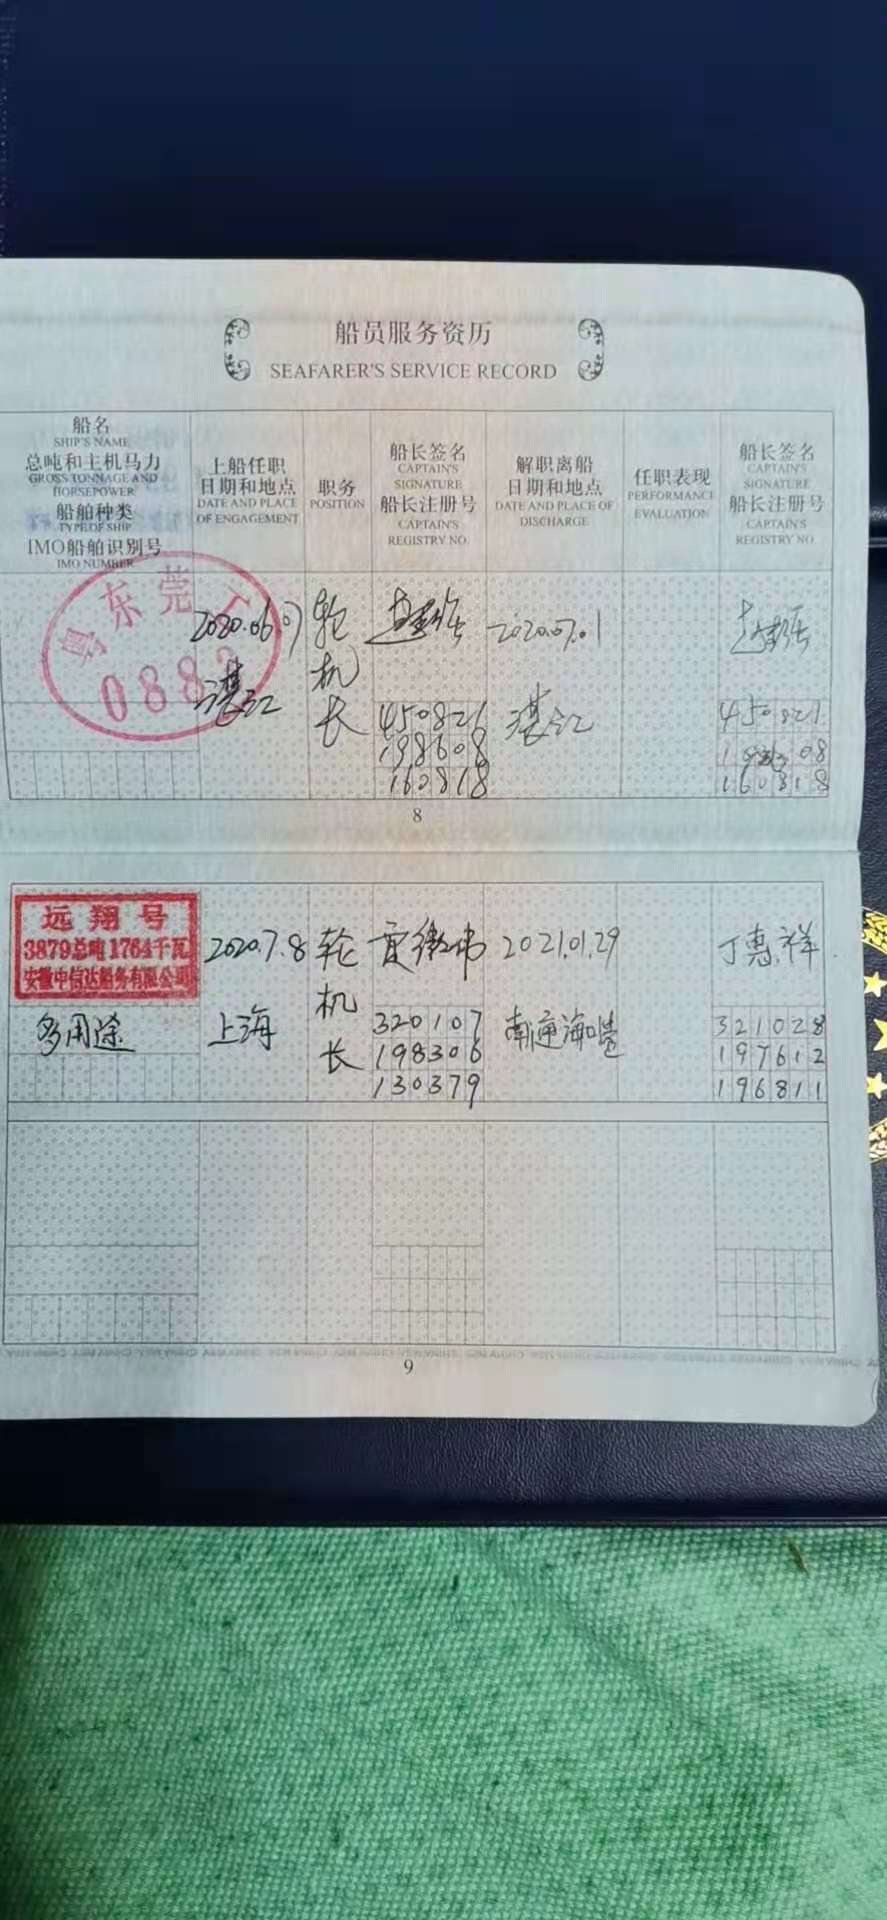 船员服务资历
SEAFARER'S SERVICE RECORD
船名
SHIP'S NAME
总吨和主机马力
GROSS TONNAGE AND
HORSEPOWER
船舶种类
TYPE OF SHIP
IMO船舶识别号
IMO NUMBER
上船任职
日期和地点
DATE AND PLACE
OF ENGAGEMENT
职务
POSITION
船长签名
CAPTAIN'S
SIGNATURE
船长注册号
CAPTAIN'S
REGISTRY NO.
解职离船
日期和地点
DATE AND PLACE OF
DISCHARGE
任职表现
PERFORMANCE
EVALUATION
船长签名
CAPTAIN'S
SIGNATURE
船长注册号
CAPTAIN'S
REGISTRY NO.
粤东莞工
088
2020.06.07
湛江
轮机长
450821
198608
160818
2020.07.01
湛江
450821
08
160818
8
远翔号
3879总吨1764千瓦
安徽中信达船务有限公司
多用途
2020.7.8
上海
轮机长
320107
198306
130379
2021.01.29
南通海
丁惠祥
321028
197612
196811
9